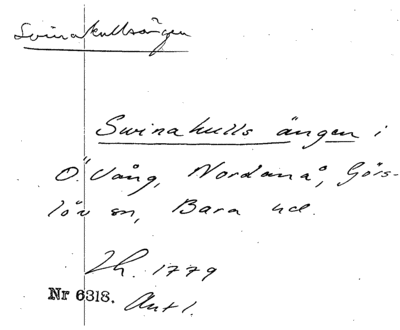 Svinakullsängen
Swinahulls ängen i
Ö. Vång, Nordanå, Görs-
löv sn, Bara hd.
Lh. 1779
Nr 6318. Avt 1.